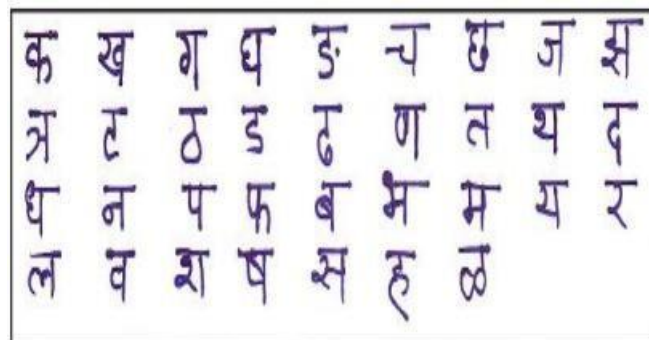 क ख ग घ ङ च छ ज झ
ञ ट ठ ड ढ ण त थ द
ध न प फ ब भ म य र
ल व श ष स ह ळ